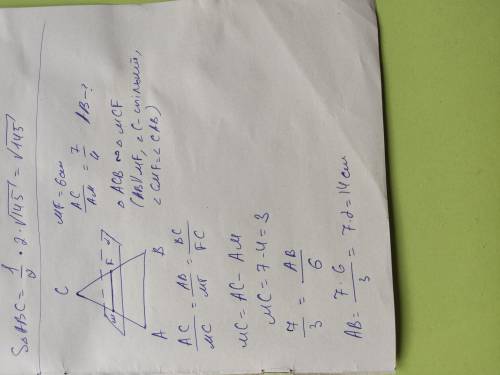 S△ABC = 1/2 · 2 · √145 = √145
C
M
F
A
B
MF = 6 см
AC/AM = 7/4 AB - ?
△ ACB ∞ △ MCF
(AB || MF, ∠C - спільний,
∠CMF = ∠CAB)
AC/MC = AB/MF = BC/FC
MC = AC - AM
MC = 7 - 4 = 3
7/3 = AB/6
AB = 7 · 6/3 = 7 · 2 = 14 см